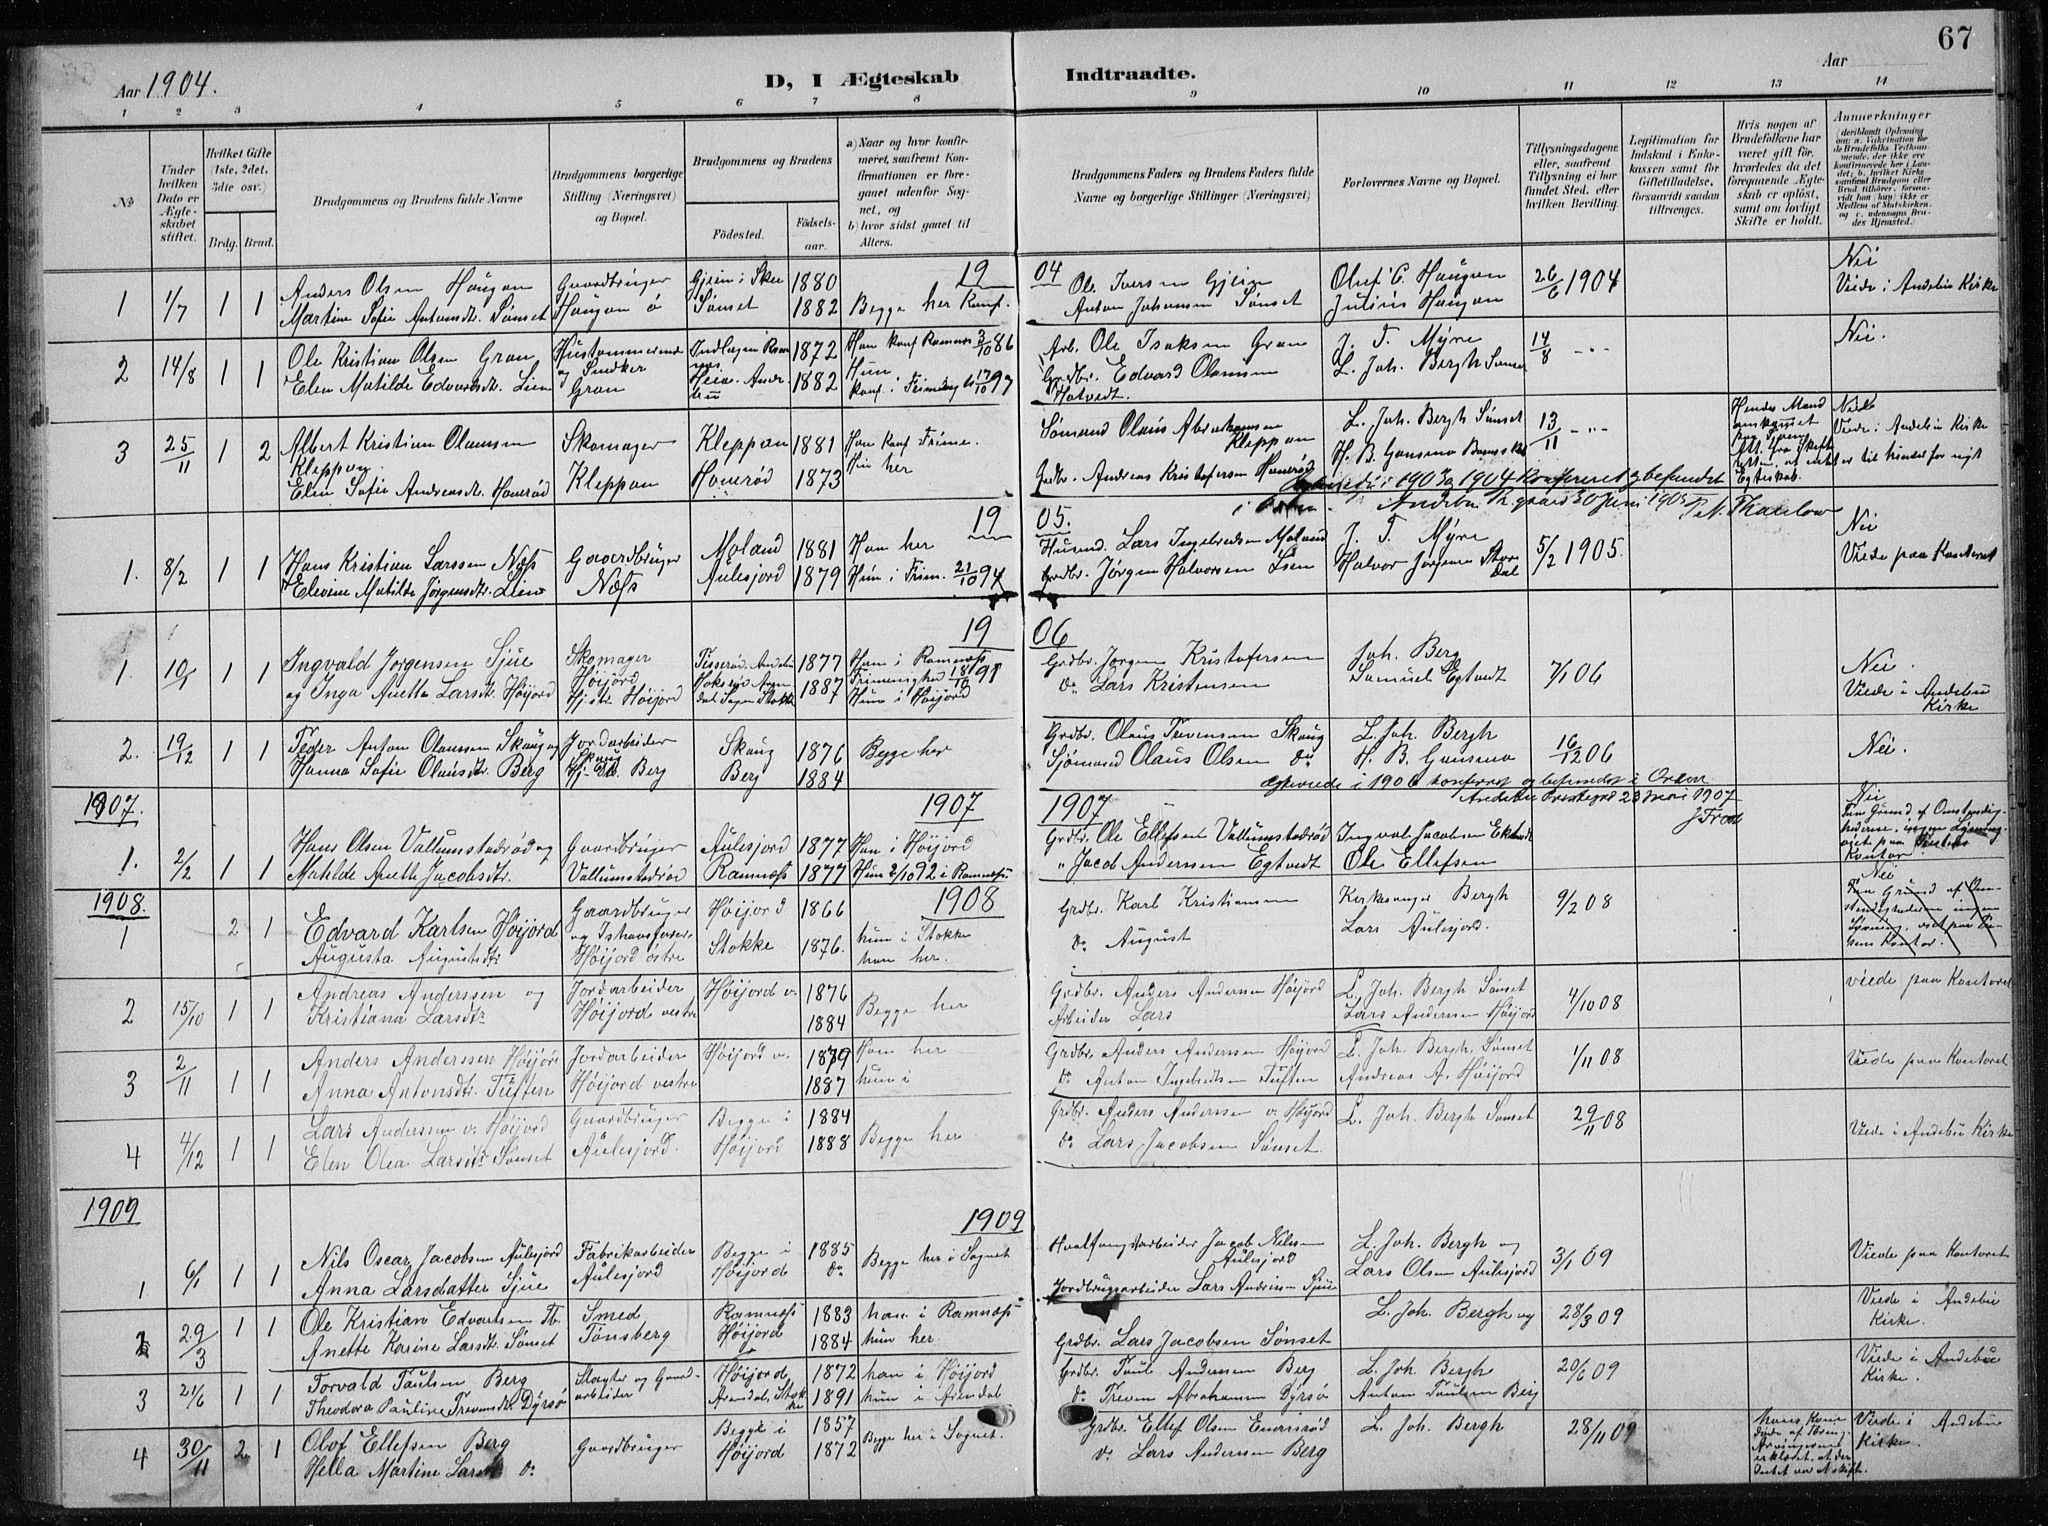 67
Aar 1904.
D, I Ægteskab Indtraadte.
Aar
1 2 3 4 5 6 7 8 9 10 11 12 13 14
No
Under hvilken Dato er Ægteskabet stiftet.
Hvilket Gifte (1ste, 2det, 3die osv.)
Brdg. Brud.
Brudgommens og Brudens fulde Navne
Brudgommens borgerlige Stilling (Næringsvei) og Bopæl.
Brudgommens og Brudens
Fødested. Fødselsaar.
a) Naar og hvor konfirmeret, saafremt Konfirmationen er foregaaet udenfor Sognet, og
b) hvor sidst gaaet til Alters.
Brudgommens Faders og Brudens Faders fulde Navne og borgerlige Stillinger (Næringsvei)
Forlovernes Navne og Bopæl.
Tillysningsdagene eller, saafremt Tillysning ei har fundet Sted, efter hvilken Bevilling.
Legitimation for Indskud i Enkekassen samt for Giftetilladelse, forsaavidt saadan tiltrænges.
Hvis nogen af Brudefolkene har været gift før, hvorledes da det foregaaende Ægteskab er opløst, samt om lovligt Skifte er holdt.
Anmerkninger
19 04
1 1/7 1 1 Anders Olsen Haugan Gaardbruger Gjein i Skee 1880 Ole Iversen Gjein Oluf C. Haugan 26/6 1904 Nei
Martine Sofie Antonsdt. Sønset Haugan ø Sønset 1882 Begge her Konf. Anton Johansen Sønset Julius Haugan Viede i Andebu Kirke
2 14/8 1 1 Ole Kristian Olsen Gran Hustømmermand og Snedker Gran 1872 Han konf Ramnæs 3/10 86 Arb. Ole Isaksen Gran J. T. Myre 14/8 -"- Nei.
Elen Matilde Edvardsdt. Lien 1882 Hun konf. i 17/10 97 Grdbr. Edvard Olausen Hotvedt. L. Joh. Bergh Sønset
3 25/11 1 2 Albert Kristian Olaussen Kleppan. Skomager Kleppan 1881 Han konf Frime. Sømand Olaus Abrahamsen Kleppan L. Joh. Bergh Sønset 13/11 -"- Hendes Mand omkommet Nei
Elen Sofie Andreasdt. Honerød Kleppan Honerød 1873 Hun her Gdbr. Andreas Kristofersen Honerød H. B. Gansmo Viede i Andebu Kirke
i 1903 og 1904 konfereret og befundet i Orden.
Andebu Pr.gaard 30 Juni 1905
19 05.
1. 8/2 1 1 Hans Kristian Larssen Næss Gaardbruger Moland 1881 Han her Husmd. Lars Ingebredsen Moland J. T. Myre 5/2 1905. Nei
Elevine Matilde Jørgensdtr. Lien Næss Aulesjord 1879 Hun i Frim. 21/10 94 Grdbr. Jörgen Halvorsen Lien Halvor Jørgensen Stordal Viede paa Kontoret
19 06
1. 10/1 1 1 Ingvald Jørgensen Sjue Skomager Høijord 1877 Han i Ramnæss Frimenighed 18/10 91 Grdbr. Jørgen Kristofersen Joh. Berg 7/1 06 Nei.
og Inga Anetta Larsdt. Høijord Hj.str. Høijord 1887 Hun i Høijord Do. Lars Kristensen Samuel Egtvedt Viede i Andebu Kirke
2. 19/12 1 1 Peder Anton Olaussen Skaug og Jordarbeider Skaug Skaug 1876 Begge her Grdbr. Olaus Trevensen Skaug L. Joh. Bergh 16/12 06 Nei.
Hanna Sofie Olausdt. Berg Berg Berg 1884 Sjømand Olaus Olsen Do H. B. Gansmo
Ægteviede i 1906 konfereret og befundet i Orden.
Andebu Prestegrd 23 mai 1907
1907. 1907 1907
1. 2/2 1 1 Hans Olsen Vallumstadrød og Gaardbruger Aulesjord 1877 Han i Høijord Grdbr. Ole Ellefsen Vallumstadrød Ingval Jacobsen Nei
Matilde Anette Jacobsdtr. Vallumstadrød Ramnæss 1877 Hun 2/10 92 i Ramnæss " Jacob Andersen Egtvedt Ole Ellefsen Paa Grund af Omstændighederne, ingen Lysning, viet paa Kontor.
1908. 1908
1 2 1 Edvard Karlsen Høijord Gaardbruger Høijord 1866 hun i Stokke Grdbr. Karl Kristiansen Kirkesanger Bergh 9/2 08 Nei
Augusta Augustsdtr Høijord østre Stokke 1876. han her. Do August Lars Aulesjord. Paa Grund af Omstændighederne ingen Lysning, viet paa Kontor.
2 15/10 1 1 Andreas Anderssen og Jordarbeider Høijord v. 1876 Begge her Grdbr. Anders Andersen Høijord L. Joh. Bergh Sønset 4/10 08 viede paa Kontoret
Kristiana Larsdtr Høijord vestre 1884 Arbeider Lars Lars Andersen Høijord
3 2/11 1 1 Anders Anderssen Høijord Jordarbeider Høijord v. 1879 Han her Grdbr. Anders Anderssen Høijord L. Joh. Bergh. Sønset 1/11 08 Viede paa Kontoret
Anna Antonsdtr. Tuften Høijord vestre 1887 hun i Do Anton Ingebredtsen Tuften Andreas A. Høijord
4 4/12 1 1 Lars Anderssen v. Høijord Gaardbruger Begge i 1884 Begge her Grdbr. Anders Andersen v. Høijord L. Joh. Bergh Sønset 29/11 08 Viede i Andebu Kirke
Elen Olea Larsdtr Sønset Aulesjord. Høijord 1888 do Lars Jacobsen Sønset.
1909 1909
1 6/1 1 1 Nils Oscar Jacobsen Aulesjord Fabrikarbeider Begge i 1885 Begge her i Sognet Hvalfangstarbeider Jacob Nilsen Aulesjord L. Joh. Bergh og 3/1 09 Viede paa Kontoret
Anna Larsdatter Sjue Aulesjord Høijord do Jordbrugsarbeider Lars Andersen Sjue Lars Olsen Aulesjord
2 29/3 1 1 Ole Kristian Edvartsen Tb. Smed Ramnæss 1883 han i Ramnæss L. Joh. Bergh og 28/3 09 Viede i Andebu Kirke.
Anette Karine Larsdt. Sønset Tønsberg Høijord 1884 hun her. Grdbr. Lars Jacobsen Sønset
3 21/6 1 1 Torvald Paulsen Berg Slagter og Gaardarbeider Høijord 1872 han i Høijord Grdbr. Paul Andersen Berg L. Joh. Bergh 20/6 09 Viede i Andebu Kirke.
Theodora Pauline Trevensdt. Dyrsø Arendal, Stokke 1891 hun i Arendal do Treven Abrahamsen Dyrsø Anton Paulsen Berg
4 30/11 2 1 Olof Ellefsen Berg Gaardbruger Begge i 1857 Begge her i Sognet. Grdbr. Ellef Olsen L. Joh. Bergh 28/11 09 hans Kone døde Viede i Andebu Kirke.
Hella Martine Larsdt. do Høijord 1872 do. Lars Andersen Berg